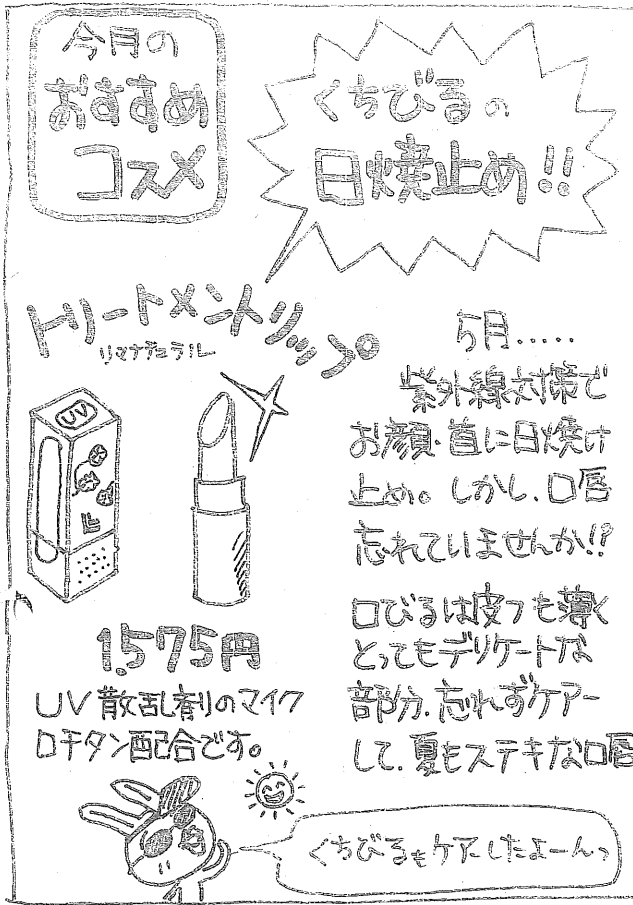 今月の
おすすめ
コスメ
くちびるの
日焼止め!!
トリートメントリップ
リマナチュラル
UV
1.575円
UV散乱剤のマイク
ロチタン配合です。
5月.....
紫外線対策で
お顔・首に日焼け
止め。しかし、口唇
忘れていませんか!?
口びるは皮フも薄く
とってもデリケートな
部分、忘れずケアー
して、夏もステキな口唇
くちびるもケアしたよーんっ